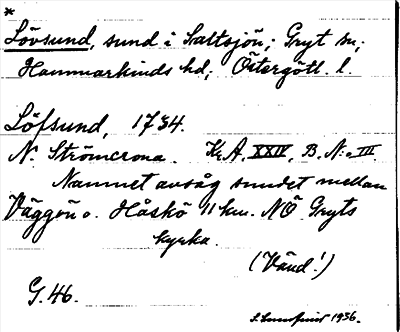 *
Lövsund, sund i Saltsjön; Gryt sn;
Hammarkinds hd; Östergötl. l.
Löfsund, 1734.
N. Strömcrona. Kr. A, XXIV, B. N:o III.
Namnet avsåg sundet mellan
Väggön o. Håskö 11 km. NÖ Gryts
kyrka.
(Vänd!)
G. 46.
1936.